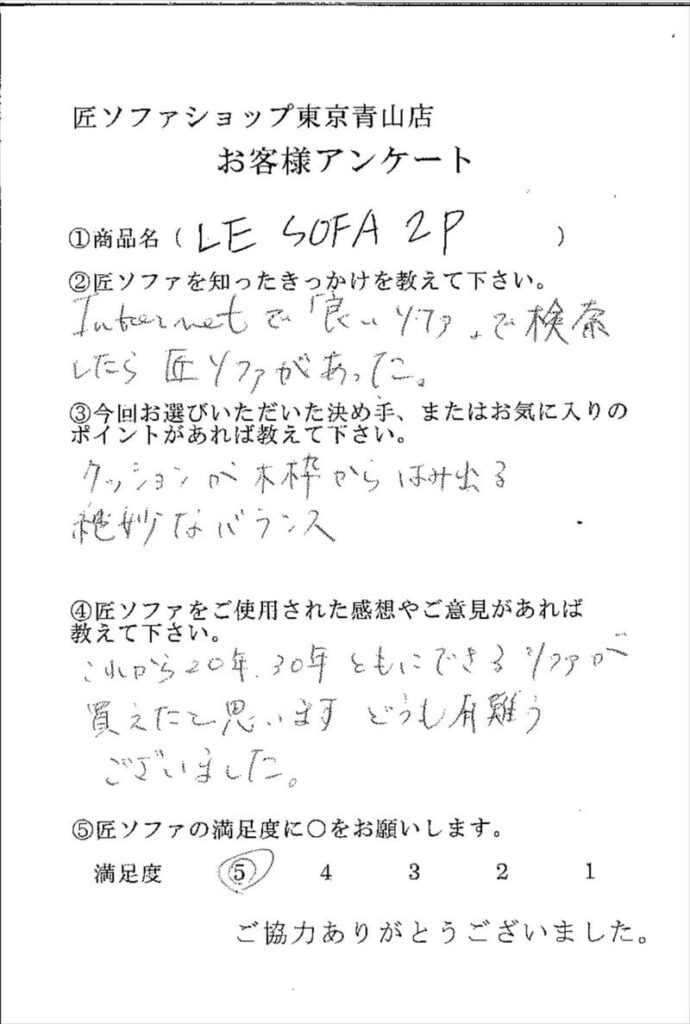 匠ソファショップ東京青山店
お客様アンケート
①商品名（ LE SOFA 2P ）
②匠ソファを知ったきっかけを教えて下さい。
Internetで「良いソファ」で検索
したら匠ソファがあった。
③今回お選びいただいた決め手、またはお気に入りの
ポイントがあれば教えて下さい。
クッションが木枠からはみ出る
絶妙なバランス
④匠ソファをご使用された感想やご意見があれば
教えて下さい。
これから20年、30年ともにできるソファが
買えたと思います どうも有難う
ございました。
⑤匠ソファの満足度に○をお願いします。
満足度 ⑤ 4 3 2 1
ご協力ありがとうございました。